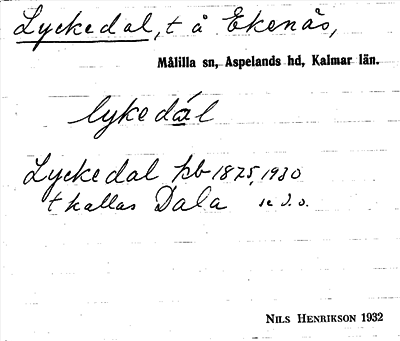 Lyckedal, t å Ekenäs,
Målilla sn, Aspelands hd, Kalmar län.
lykedál
Lyckedal kb 1875, 1930
t kallas Dala se d. o.
NILS HENRIKSON 1932